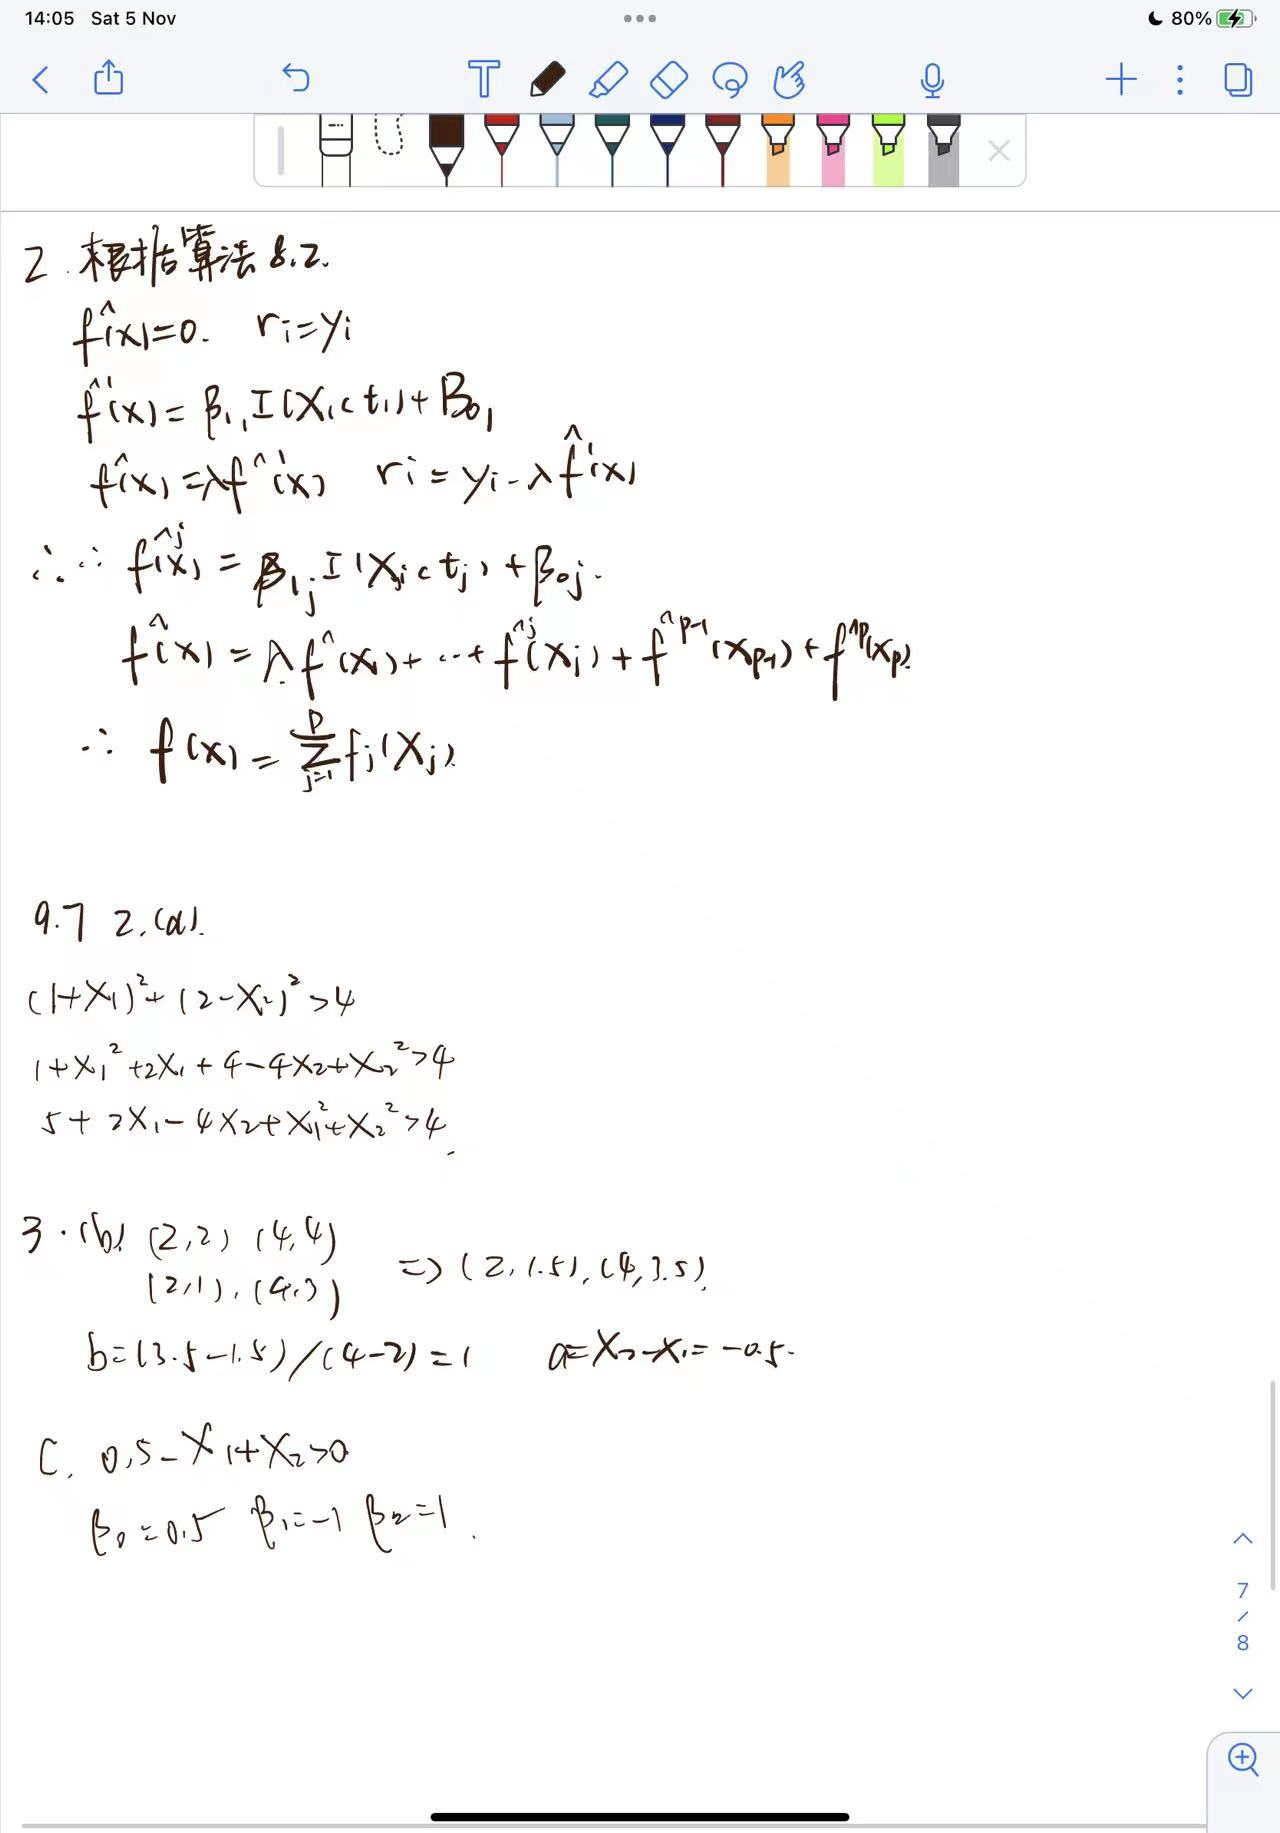 14:05 Sat 5 Nov
80%
2. 根据算法8.2.
f̂(x)=0. ri=yi
f̂¹(x)=β₁₁I(X₁<t₁)+β₀₁
f̂(x)=λf̂¹(x) ri=yi-λf̂¹(x)
∴∴ f̂ʲ(x)=β₁jI(Xj<tj)+β₀j.
f̂(x)=λf̂(x₁)+…+f̂ʲ(xj)+f̂ᵖ⁻¹(xp-1)+f̂ᵖ(xp)
∴ f(x)=Σ_{j=1}^{p} fj(Xj).
9.7 2.(a).
(1+X₁)²+(2-X₂)²>4
1+X₁²+2X₁+4-4X₂+X₂²>4
5+2X₁-4X₂+X₁²+X₂²>4.
3.(b) (2,2) (4,4)
(2,1),(4,3)
=>(2,1.5),(4,3.5).
b=(3.5-1.5)/(4-2)=1 a=X₂-X₁=-0.5.
C. 0.5-X₁+X₂>0
β₀=0.5 β₁=-1 β₂=1.
7
/
8